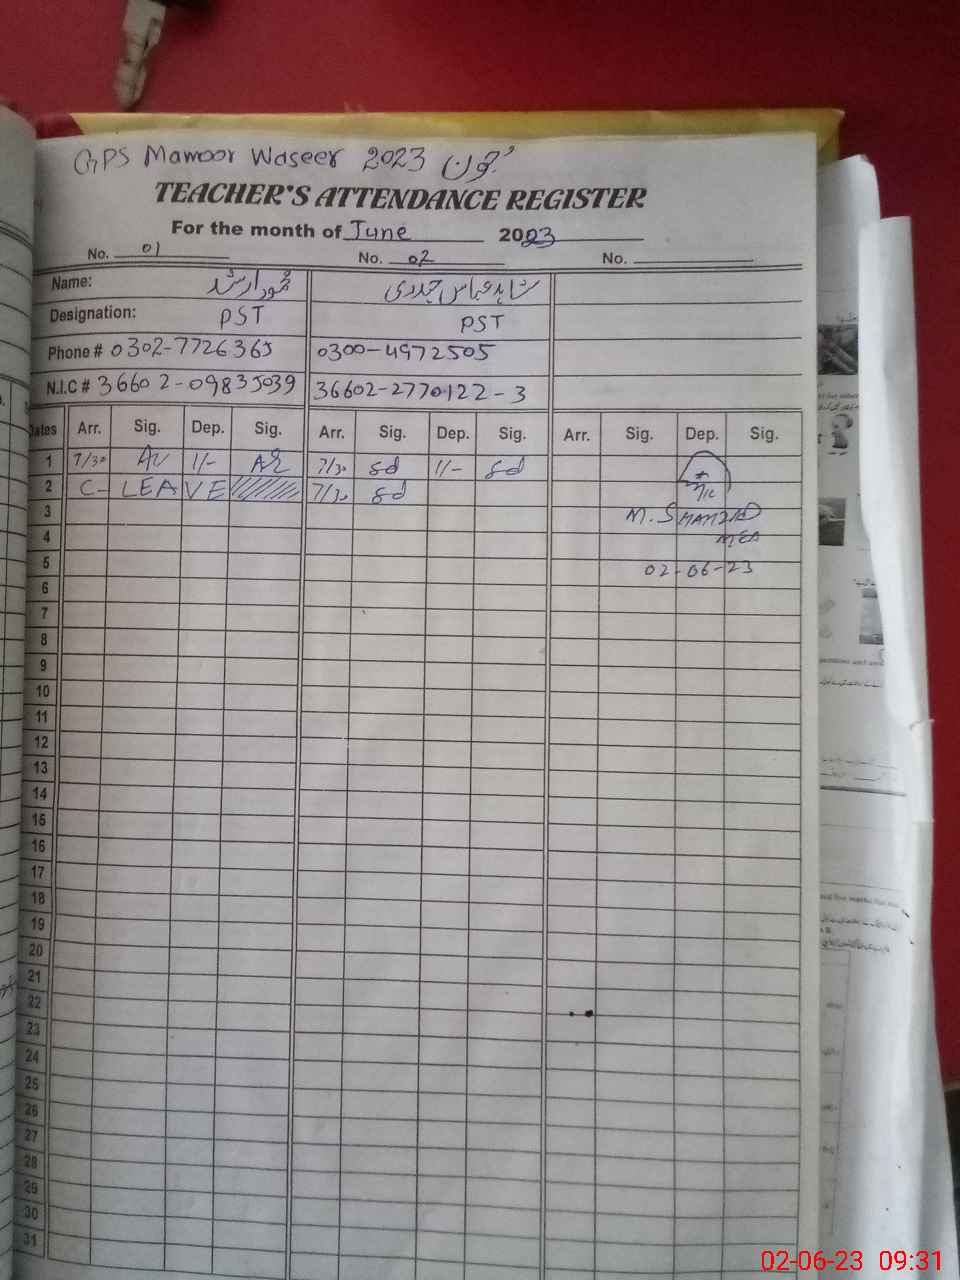 GPS Mamoor Waseer 2023 جون
TEACHER'S ATTENDANCE REGISTER
For the month of June 2023
No. 01 No. 02 No.
Name: محمود ارشد شاہد عباس حیدری
Designation: PST PST
Phone # 0302-7726365 0300-4972505
N.I.C # 36602-09835039 36602-2770122-3
Dates Arr. Sig. Dep. Sig. Arr. Sig. Dep. Sig. Arr. Sig. Dep. Sig.
1 7/30 1/- 7/30 Sd 1/- Sd
2 C-LEAVE 7/30 Sd
3 M. SHAHZAD
4 MEA
5 02-06-23
6
7
8
9
10
11
12
13
14
15
16
17
18
19
20
21
22
23
24
25
26
27
28
29
30
31
02-06-23 09:31